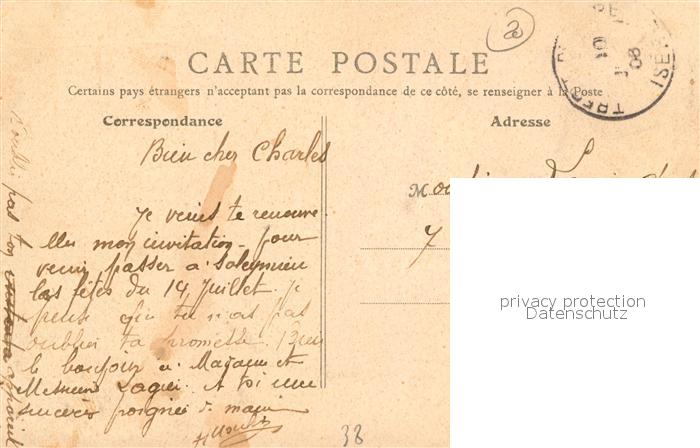 20
CARTE POSTALE
Certains pays étrangers n'acceptant pas la correspondance de ce côté, se renseigner à la Poste
Correspondance
Adresse
Bien cher Charles
M
7
Je viens te renouve
ller mon invitation pour
venir passer à Soleymieu
les fêtes du 14 Juillet. Je
pense que tu n'as pas
oublié ta promesse. Bien
le bonjour à Madame et
Messieurs
A toi une
sincère poignée de main
N'oublie pas ton appareil
38
privacy protection
Datenschutz